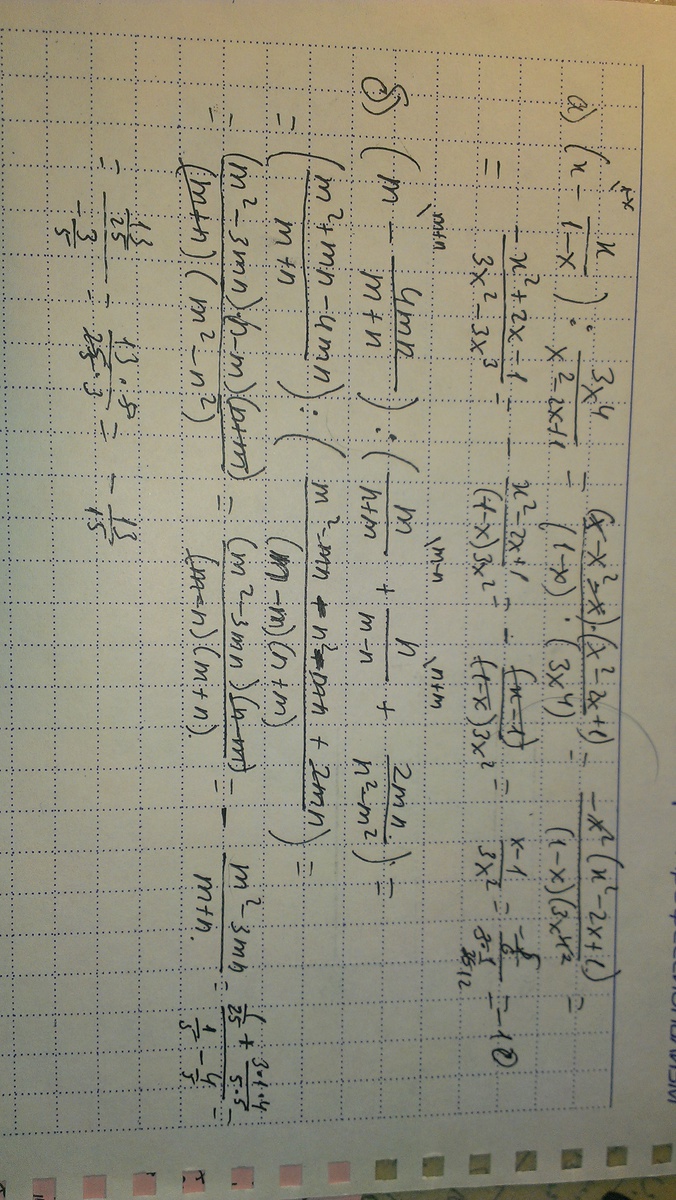 а) (x - x/(1-x)) : 3x^4/(x^2-2x+1) = (x-x^2-x)·(x^2-2x+1)/((1-x)·(3x^4)) = -x^2(x^2-2x+1)/((1-x)(3x^4)) =
= (-x^2+2x-1)/(3x^2-3x^3) = - (x^2-2x+1)/((1-x)3x^2) = - (x-1)/((1-x)3x^2) = (x-1)/(3x^2) = = -10
б) (m - 4mn/(m+n)) : (m/(n+m) + n/(m-n) + 2mn/(n^2-m^2)) =
= ((m^2+mn-4mn)/(m+n)) : ((m^2-mn+n^2-mn+2mn)/((n-m)(n+m))) =
= (m^2-3mn)(n-m)(n+m)/((m+n)(m^2-n^2)) = (m^2-3mn)(n-m)/((m-n)(m+n)) = - (m^2-3mn)/(m+n) = (1/25 + 3·1·4/(5·5))/(1/5 - 4/5) =
= (13/25)/(-3/5) = 13·5/(25·3) = - 13/15